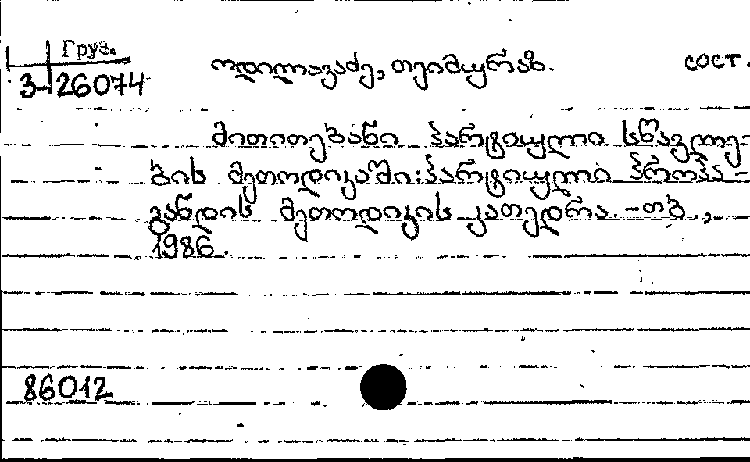 Груз.
3-26074
ოდილავაძე, თეიმურაზ. сост.
მითითებანი პარტიული სწავლე-
ბის მეთოდიკაში: პარტიული პროპა-
განდის მეთოდიკის კათედრა. -თბ.,
1986.
86012